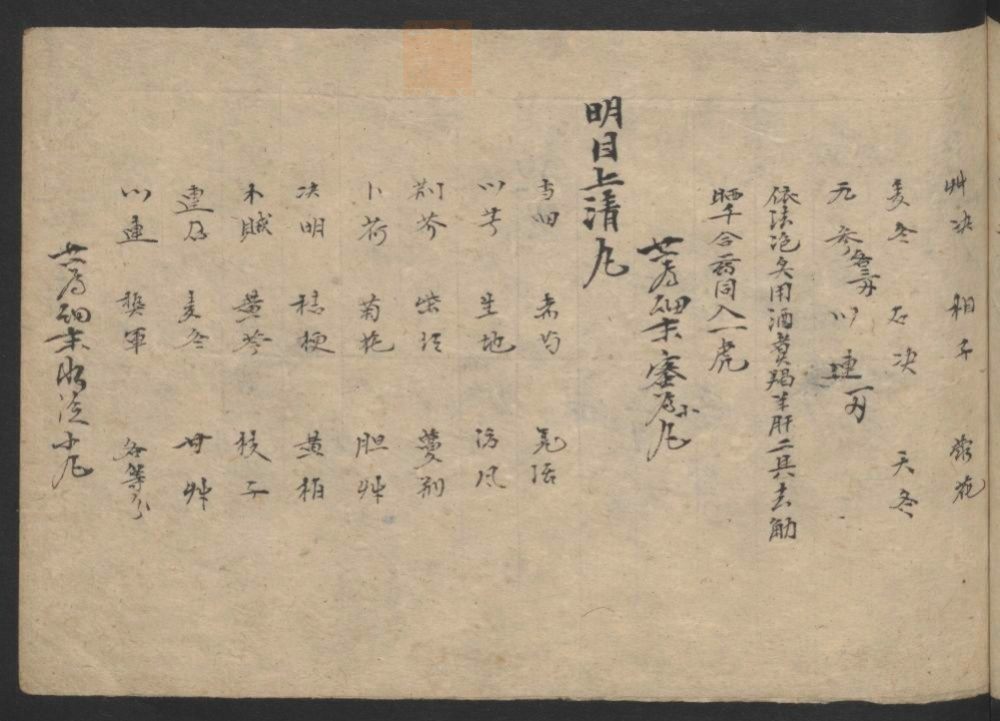 艸决 相子 菊花
麦冬 石决 天冬
元参各三刄 川連一刄
依法泡炙用酒煑羯羊肝二具去筋
晒干合药同入一處
共為细末蜜丸小丸
明目上清丸
当归 赤芍 羌活
川芎 生地 防风
荆芥 柴胡 蔓荆
卜荷 菊花 胆艸
决明 桔梗 黄柏
木賊 黄芩 枝子
連召 麦冬 甘艸
川連 各等分
共為细末水泛小丸